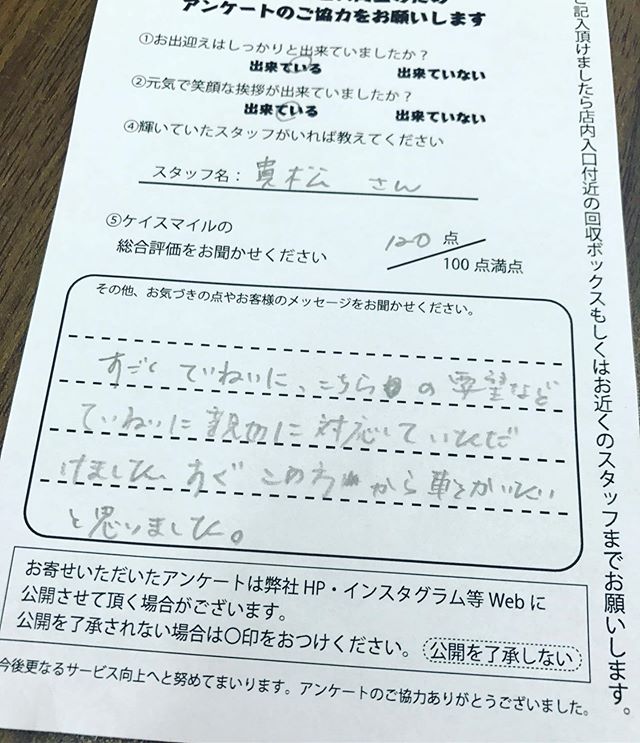 アンケートのご協力をお願いします
①お出迎えはしっかりと出来ていましたか?
出来ている 出来ていない
②元気で笑顔な挨拶が出来ていましたか?
出来ている 出来ていない
④輝いていたスタッフがいれば教えてください
スタッフ名: 貴松 さん
⑤ケイスマイルの
総合評価をお聞かせください
120 点
100 点満点
その他、お気づきの点やお客様のメッセージをお聞かせください。
すごく ていねいに、こちらの 要望など
ていねいに 親切に 対応して いただ
けました。すぐ この方から 車をかいたい
と思いました。
お寄せいただいたアンケートは弊社 HP・インスタグラム等 Web に
公開させて頂く場合がございます。
公開を了承されない場合は〇印をおつけください。 公開を了承しない
今後更なるサービス向上へと努めてまいります。アンケートのご協力ありがとうございました。
ご記入頂けましたら店内入口付近の回収ボックスもしくはお近くのスタッフまでお願いします。